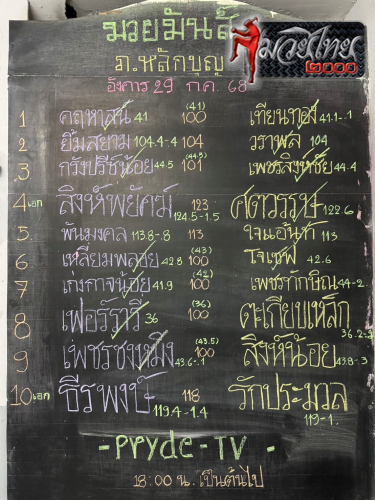 มวยมันส์
มวยไทย
2000
ภ.หลักบุญ
อังคาร 29 กค. 68
1 คฤหาสน์ 41 (41) 100 เทียนทอง 41.1-.1
2 ยิ้มสยาม 104.4-.4 104 วราพล 104
3 กรังปรีซ์น้อย 44.5 (44.5) 101 เพชรสิงห์ชัย 44.4
4 เอก สิงห์พยัคฆ์ 124.5-1.5 123 ศตวรรษ 122.6
5 พันมงคล 113.8-.8 113 113
6 เหลี่ยมพลอย 42.8 (43) 100 โจเซฟ 42.6
7 เก่งกาจน้อย 41.9 (42) 100 เพชรทักษิณ 44-2
8 เฟอร์รารี่ 36 (36) 100 ตะเกียบเหล็ก 36.2-.2
9 เพชรชงหมิง 43.6-.1 (43.5) 100 สิงห์น้อย 43.8-.3
10 เอก ธีรพงษ์ 119.4-1.4 118 รักประมวล 119-1
-PRYDE-TV-
18:00 น. เป็นต้นไป